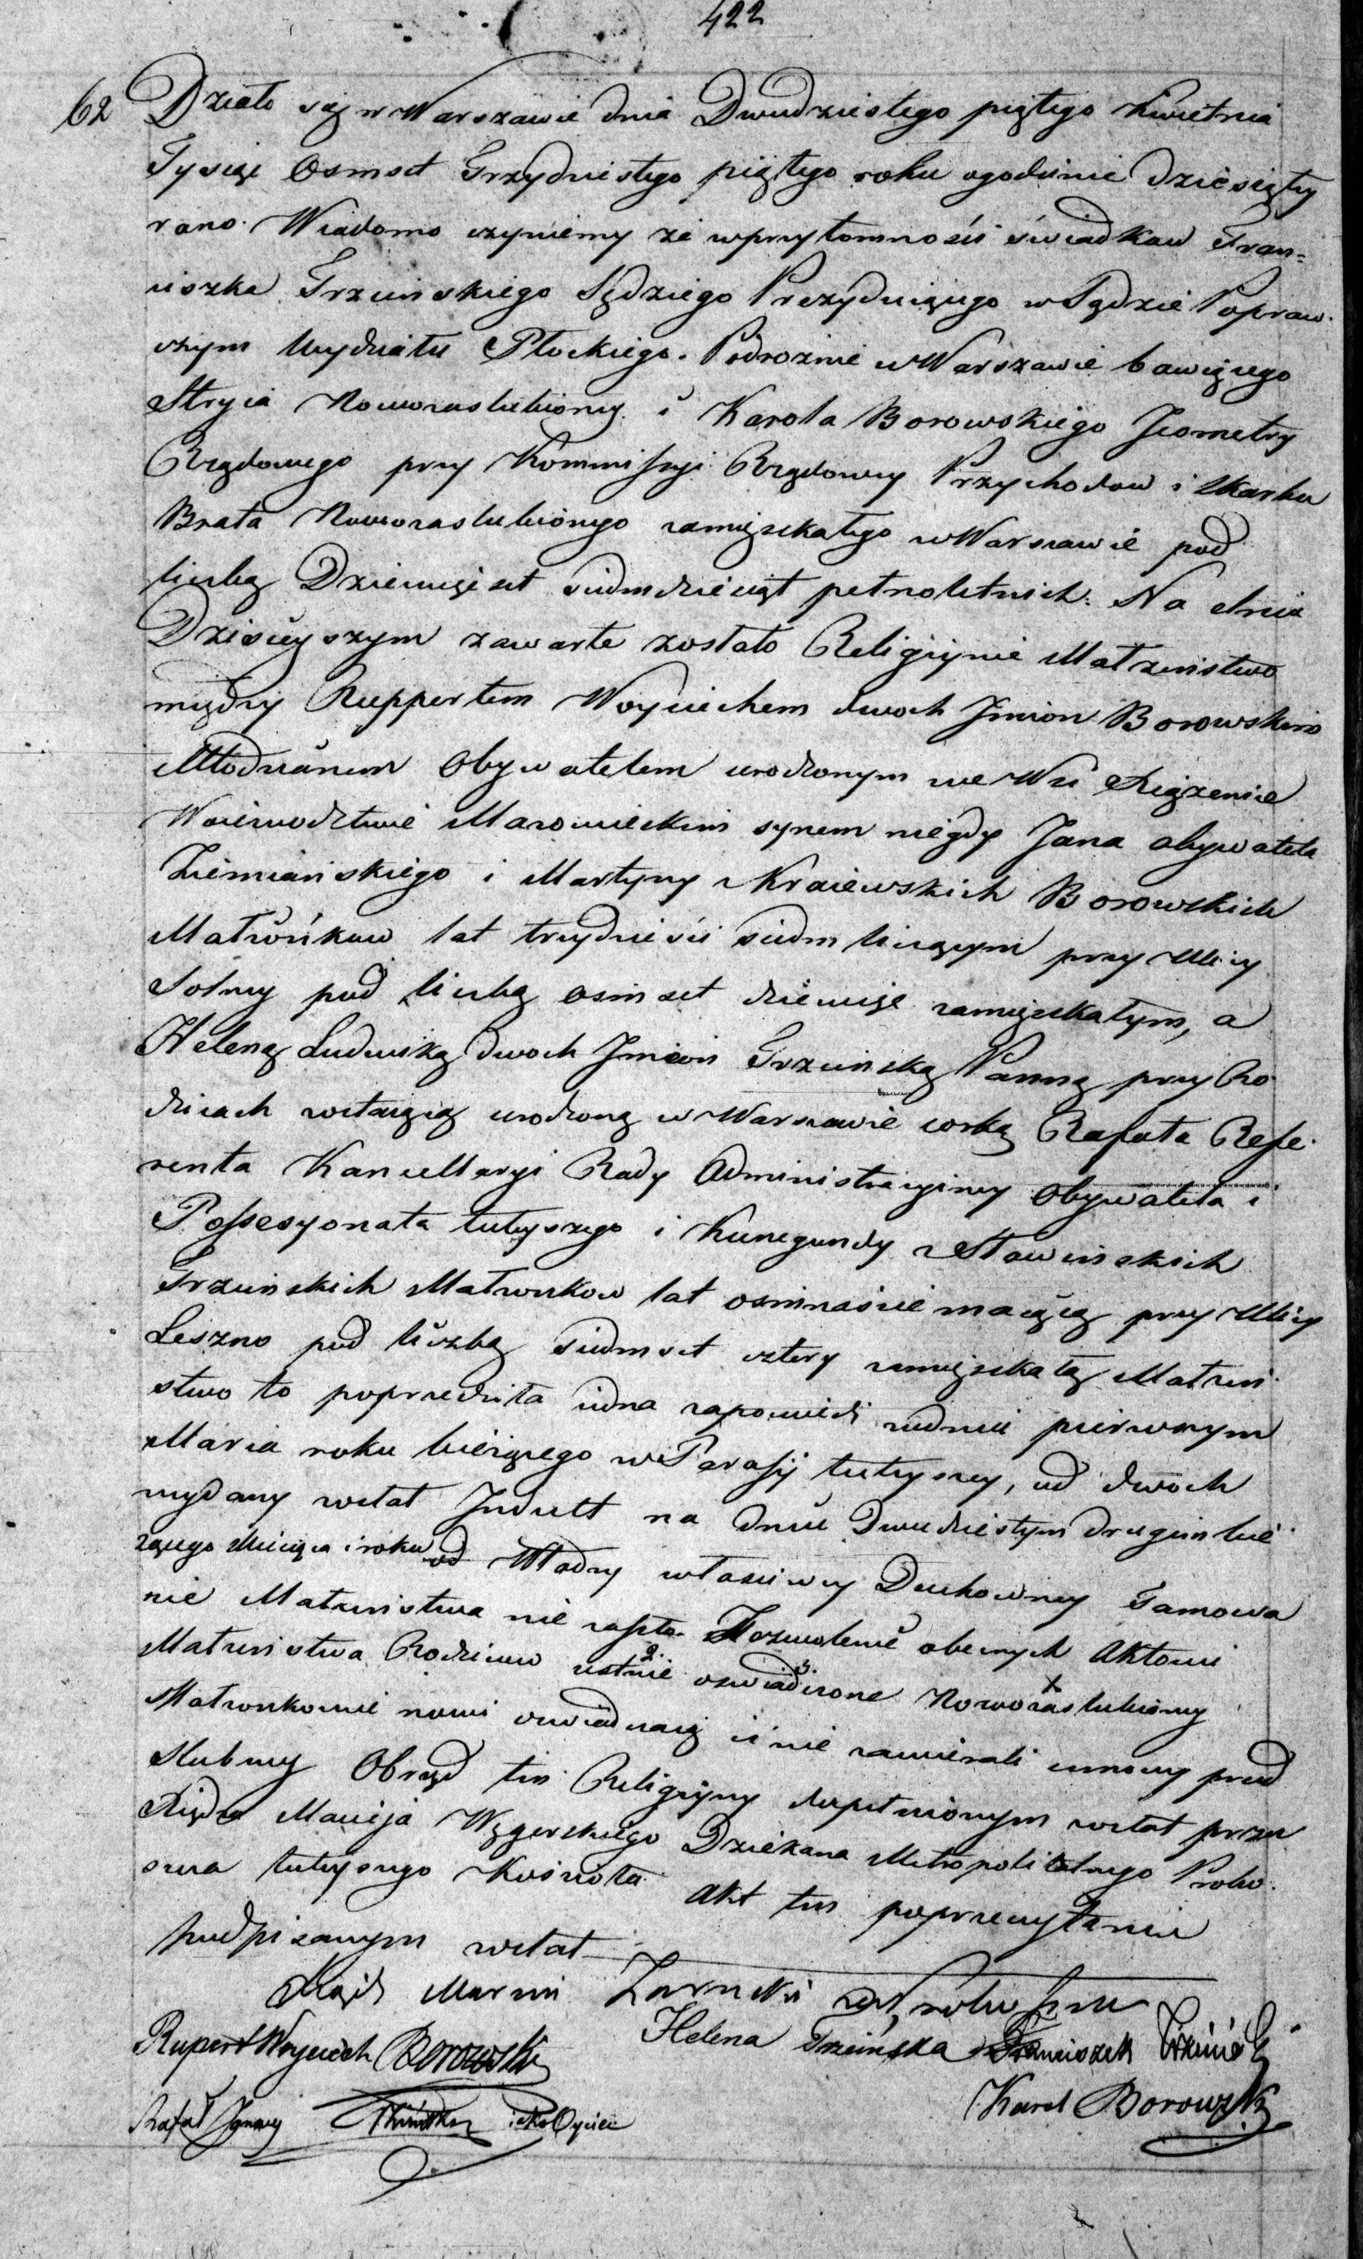 422
62 Działo się w Warszawie dnia Dwudziestego piątego Kwietnia
Tysiąc Osmset Trzydziestego piątego roku ogodzinie dziesiąty
rano. Wiadomo czyniemy że wprzytomności świadkow Fran=
ciszka Trzcinskiego Sędziego Prezyduiącego w Sądzie Popraw.
czym Wydziału Płockiego. Podroznie w Warszawie bawiącego
Stryia Nowozaslubiony i Karola Borowskiego Jeometry
Rządowego przy Kommissyi Rządowy Przychodow i Skarbu
Brata Nowozaslubionego zamięszkałego w Warszawie pod
liczbą Dziewięćset siedmdziesiąt pełnoletnich. Na dniu
Dzisieyszym zawarte zostało Religiynie Małżeństwo
między Ruppertem Woyciechem dwoch Jmion Borowskim
Młodzianem Obywatelem urodzonym we Wsi Xiążenice
Woiewodztwie Mazowieckim synem niegdy Jana obywatela
Ziemiańskiego i Martyny z Kraiewskich Borowskich
Małżonkow lat trzydzieści siedm liczącym przy Ulicy
Solney pod liczbą osmset dziewięć zamięszkałym, a
Heleną Ludwiką dwoch Jmion Trzcinską Panną przy Ro
dzicach zostaiącą urodzoną w Warszawie corką Rafała Refe.
renta Kancellaryi Rady Administracyiney Obywatela i
Possesyonata tuteyszego i Kunegundy z Sławinskich
Trzcinskich Małżonkow lat osmnaście maiącą przy Ulicy
Leszno pod liczbą siedmset cztery zamięszkałą Małżeń.
stwo to poprzedziła iedna zapowiedź wdniu pierwszym
Marca roku bieżącego w Parafij tuteyszey, od dwoch
wydany został Jndult na dniu Dwudziestym drugim bie
żącego Miesiąca i roku od Władzy właściwey Duchowney Tamowa
nie Małżeństwa nie zaszło. Zezwolenie obecnych Aktowi
Małżeństwa Rodzicow ustnie 2. oswiadczone 3. Nowozaslubiony x
Małżonkowie nowi oswiadczaią iż nie zawierali umowy przed
slubney Obrząd ten Religiyny dopełnionym został przez
Xiędza Macieja Węgerskiego Dziekana Metropolitalnego Probo.
szcza tuteyszego Kościoła. Akt ten poprzeczytaniu
podpisanym został
Xiądz Marcin
Rupert Woyciech Borowski Helena Trzcińska Franciszek Trzciński
Rafał Jgnacy Trzcińsky iako Oyciec Karol Borowski